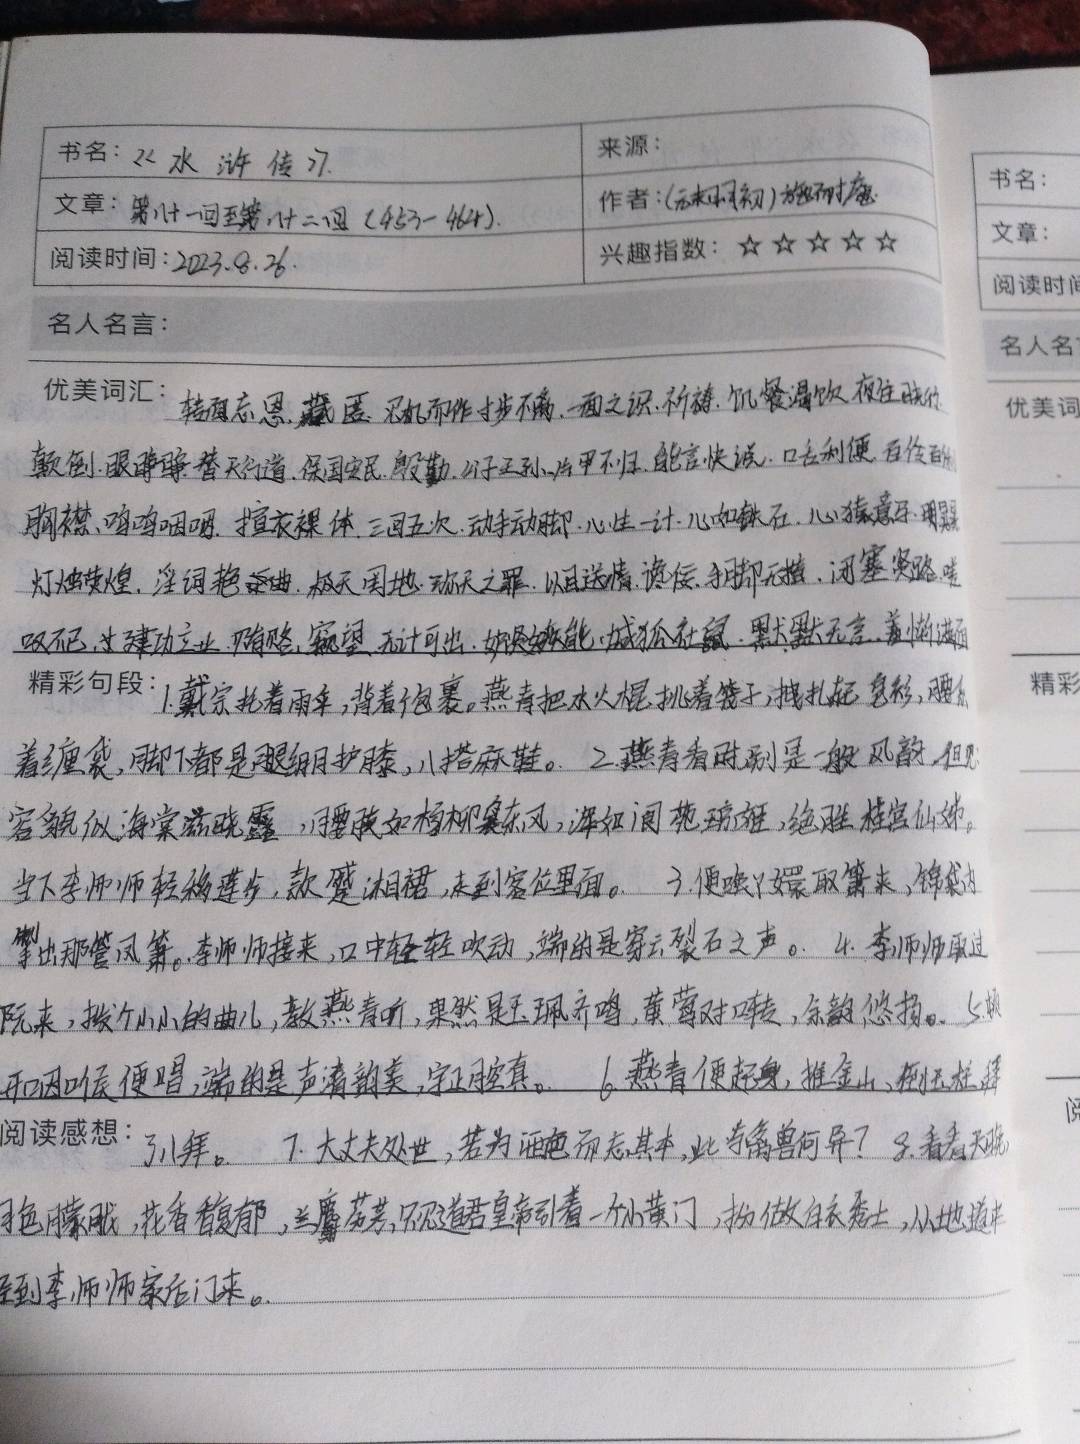 书名：《水浒传》 来源： 书名：
文章：第八十一回至第八十二回（453-464） 作者：（元末明初）施耐庵 文章：
阅读时间：2023.8.26. 兴趣指数：☆☆☆☆☆ 阅读时间
名人名言： 名人名言
优美词汇：转面忘恩.藏匿.见机而作.寸步不离.一面之识.祈祷.饥餐渴饮.夜住晓行 优美词
颠倒.眼睁睁.替天行道.保国安民.殷勤.公子王孙.片甲不归.能言快说.口舌利便.百伶百俐
胸襟、呜呜咽咽.揎衣裸体.三回五次.动手动脚.心生一计.心如铁石.心猿意马.
灯烛荧煌.淫词艳曲.极天罔地.弥天之罪.以目送情.谗佞.手脚无措.闭塞贤路.嗟
叹不已.建功立业.贿赂、窥望.无计可出.妒贤嫉能.城狐社鼠.默默无言.羞惭满面
精彩句段：1.戴宗托着雨伞，背着个包裹。燕青把水火棍挑着笼子，拽扎起皂衫，腰系 精彩
着缠袋，脚下都是腿绷护膝，八搭麻鞋。 2.燕青看时别是一般风韵，但见
容貌似海棠滋晓露，腰肢如杨柳袅东风，浑如阆苑琼姬，绝胜桂宫仙姊。
当下李师师轻移莲步，款蹙湘裙，走到客位里面。 3.便唤丫嬛取箫来，锦袋内
掣出那管凤箫。李师师接来，口中轻轻吹动，端的是穿云裂石之声。 4.李师师取过
阮来，拨个小小的曲儿，教燕青听，果然是玉珮齐鸣，黄莺对啭，余韵悠扬。 5.顿
开咽喉便唱，端的是声清韵美，字正腔真。 6.燕青便起身，推金山、倒玉柱拜
阅读感想：了八拜。 7.大丈夫处世，若为酒色而忘其本，此与禽兽何异？ 8.看看天晚， 阅
月色朦胧，花香馥郁，兰麝芬芳，只见道君皇帝引着一个小黄门，扮做白衣秀士，从地道中
径到李师师家后门来。